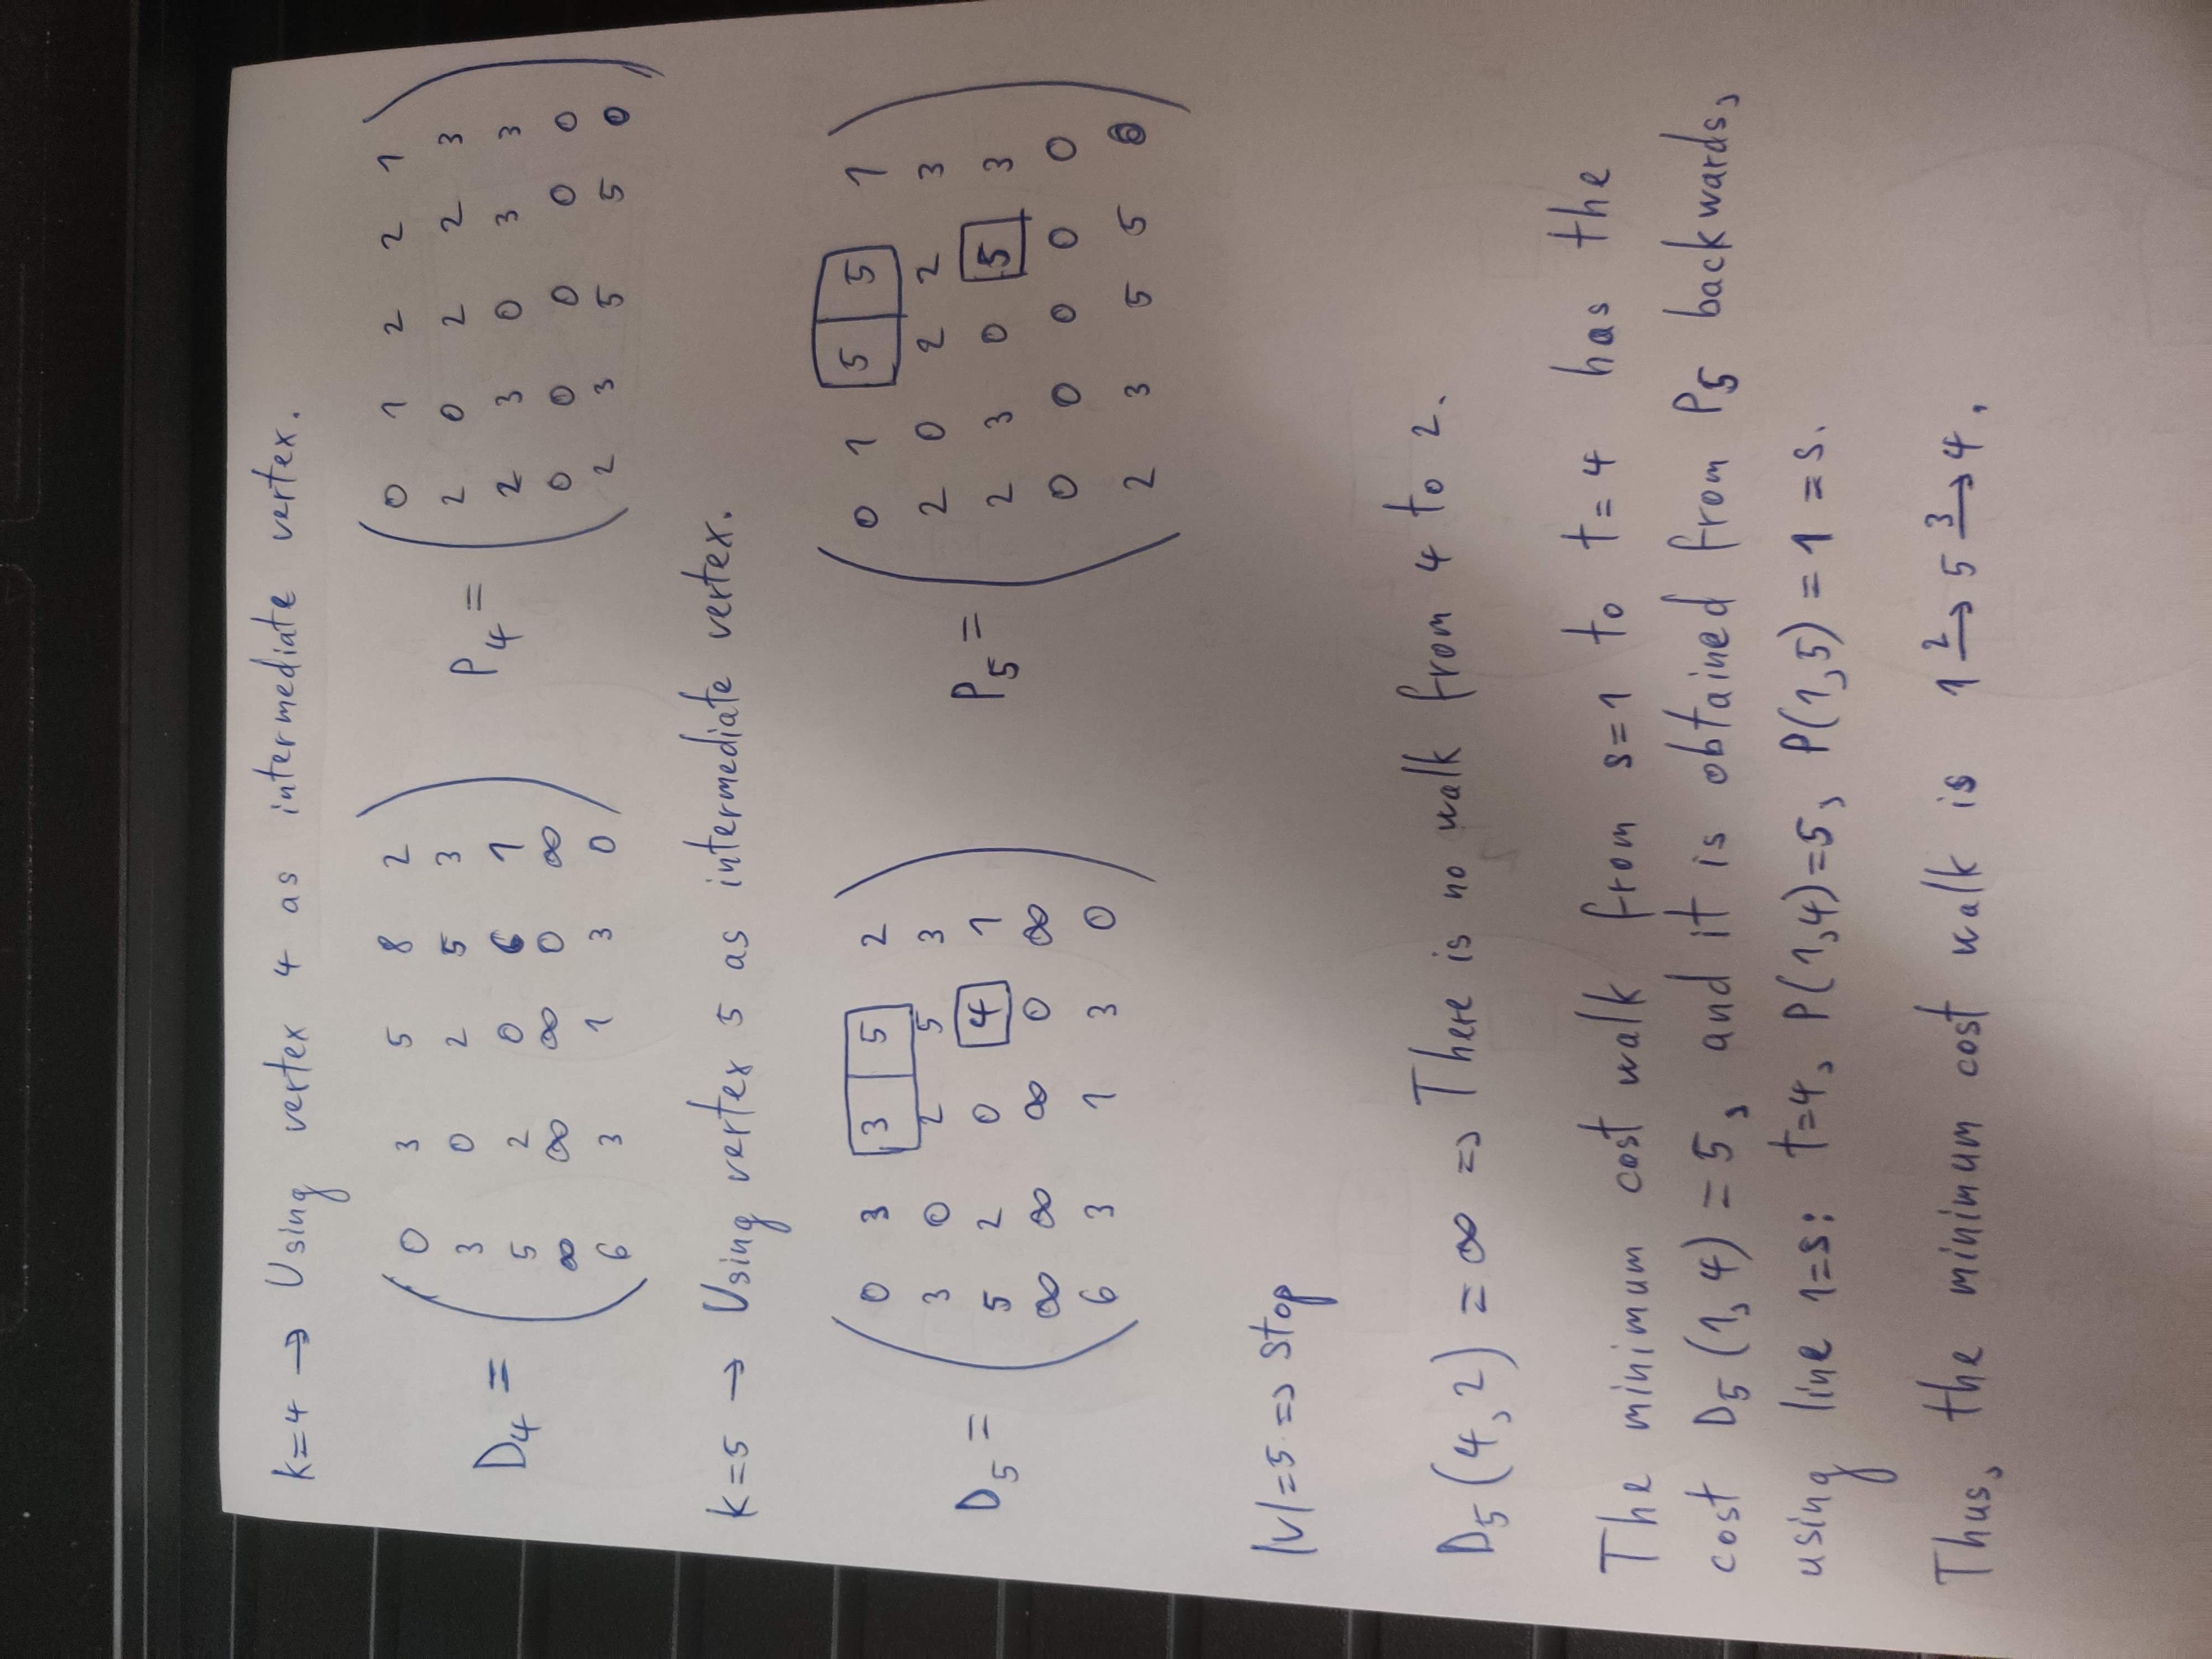 k=4 → Using vertex 4 as intermediate vertex.
0 3 5 8 2
3 0 2 5 3
D4 =
5 2 0 6 1
∞ ∞ ∞ 0 ∞
6 3 1 3 0
0 1 2 2 1
2 0 2 2 3
P4 =
2 3 0 3 3
0 0 0 0 0
2 3 5 5 0
k=5 → Using vertex 5 as intermediate vertex.
0 3 3 5 2
3 0 2 5 3
D5 =
5 2 0 4 1
∞ ∞ ∞ 0 ∞
6 3 1 3 0
0 1 5 5 1
2 0 2 2 3
P5 =
2 3 0 5 3
0 0 0 0 0
2 3 5 5 0
|V|=5 => stop
D5(4,2) = ∞ => There is no walk from 4 to 2.
The minimum cost walk from s=1 to t=4 has the
cost D5(1,4) = 5, and it is obtained from P5 backwards,
using line 1=s: t=4, P(1,4)=5, P(1,5) = 1 = s.
Thus, the minimum cost walk is 1 2→ 5 3→ 4.